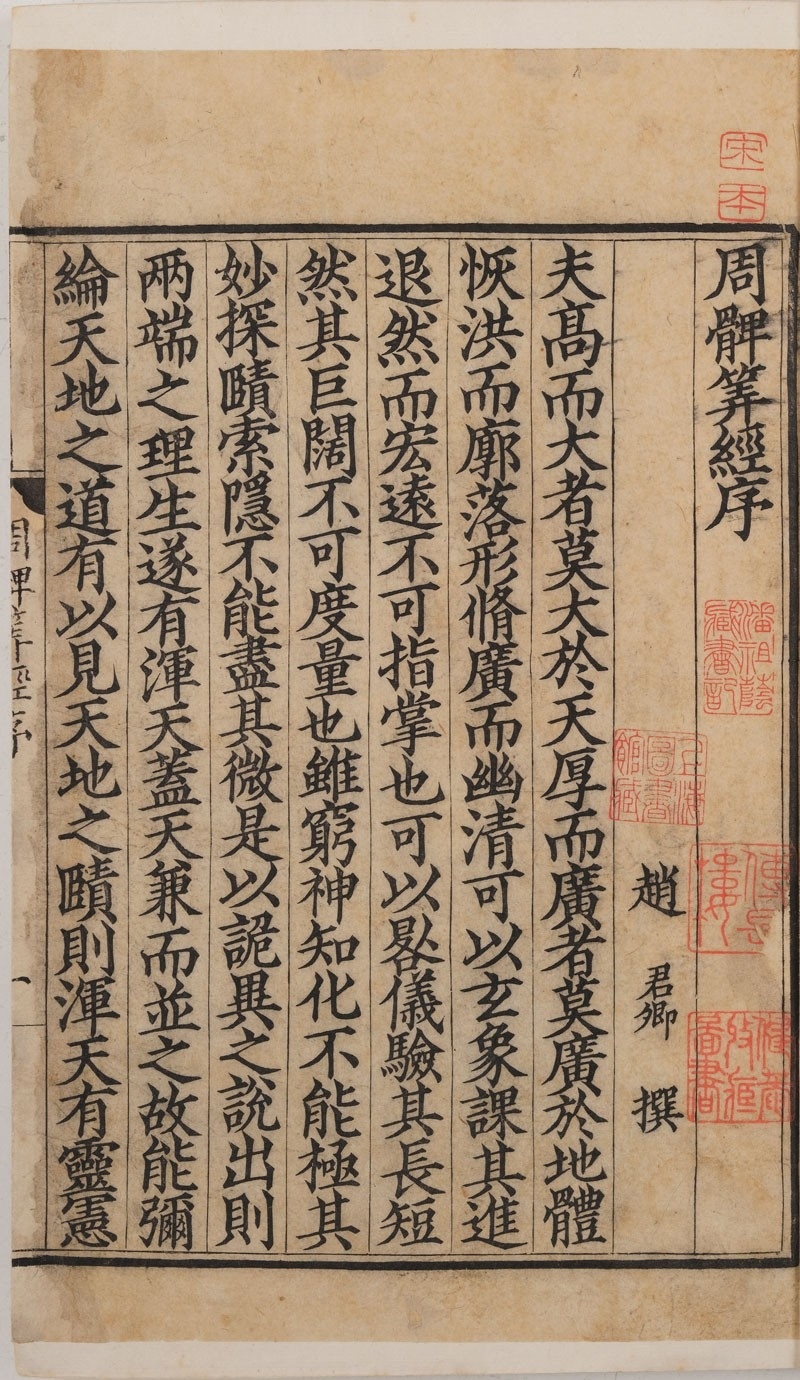 周髀筭經序
趙君卿撰
夫髙而大者莫大於天厚而廣者莫廣於地體
恢洪而廓落形脩廣而幽清可以玄象課其進
退然而宏逺不可指掌也可以晷儀驗其長短
然其巨闊不可度量也雖窮神知化不能極其
妙探賾索隱不能盡其微是以詭異之說出則
兩端之理生遂有渾天蓋天兼而並之故能彌
綸天地之道有以見天地之賾則渾天有靈憲
周髀筭經序
一
宋本
潘祖蔭藏書記
圖書館藏